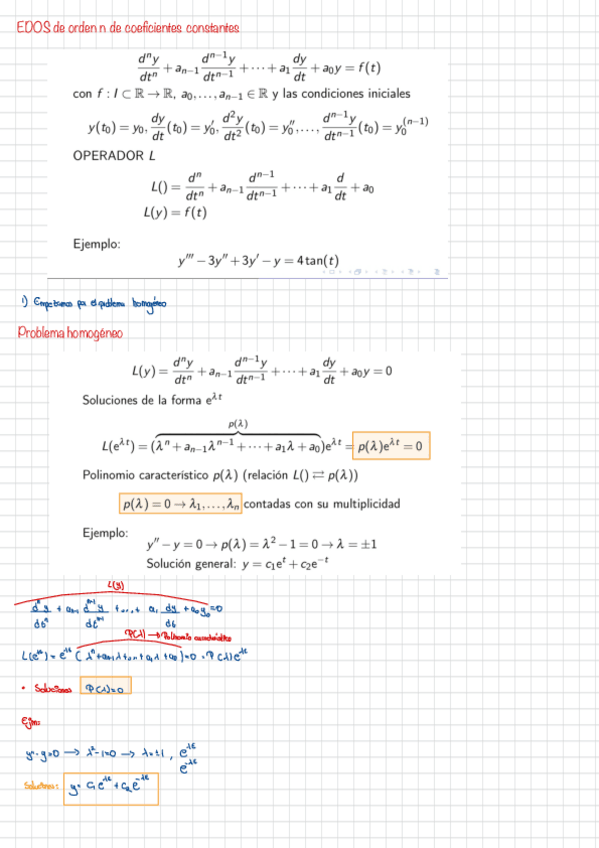 EDOS de orden n de coeficientes constantes
dⁿy/dtⁿ + aₙ₋₁ dⁿ⁻¹y/dtⁿ⁻¹ + ⋯ + a₁ dy/dt + a₀y = f(t)
con f : I ⊂ ℝ → ℝ, a₀,…,aₙ₋₁ ∈ ℝ y las condiciones iniciales
y(t₀) = y₀, dy/dt (t₀) = y₀′, d²y/dt² (t₀) = y₀″,…, dⁿ⁻¹y/dtⁿ⁻¹ (t₀) = y₀⁽ⁿ⁻¹⁾
OPERADOR L
L() = dⁿ/dtⁿ + aₙ₋₁ dⁿ⁻¹/dtⁿ⁻¹ + ⋯ + a₁ d/dt + a₀
L(y) = f(t)
Ejemplo:
y‴ − 3y″ + 3y′ − y = 4tan(t)
1) Empezamos por el problema homogéneo
Problema homogéneo
L(y) = dⁿy/dtⁿ + aₙ₋₁ dⁿ⁻¹y/dtⁿ⁻¹ + ⋯ + a₁ dy/dt + a₀y = 0
Soluciones de la forma e^{λt}
p(λ)
L(e^{λt}) = (λⁿ + aₙ₋₁λⁿ⁻¹ + ⋯ + a₁λ + a₀)e^{λt} = p(λ)e^{λt} = 0
Polinomio característico p(λ) (relación L() ⇄ p(λ))
p(λ) = 0 → λ₁,…,λₙ contadas con su multiplicidad
Ejemplo:
y″ − y = 0 → p(λ) = λ² − 1 = 0 → λ = ±1
Solución general: y = c₁eᵗ + c₂e⁻ᵗ
L(y)
dⁿy/dtⁿ + aₙ₋₁ dⁿ⁻¹y/dtⁿ⁻¹ + ... + a₁ dy/dt + a₀y = 0
P(λ) → Polinomio característico
= 0 = P(λ)e^{λt}
• Soluciones P(λ)=0
Ejm:
y″-y=0 → λ²-1=0 → λ=±1, e^{λt}
e^{-λt}
Soluciones: y= c₁e^{λt} + c₂e^{-λt}